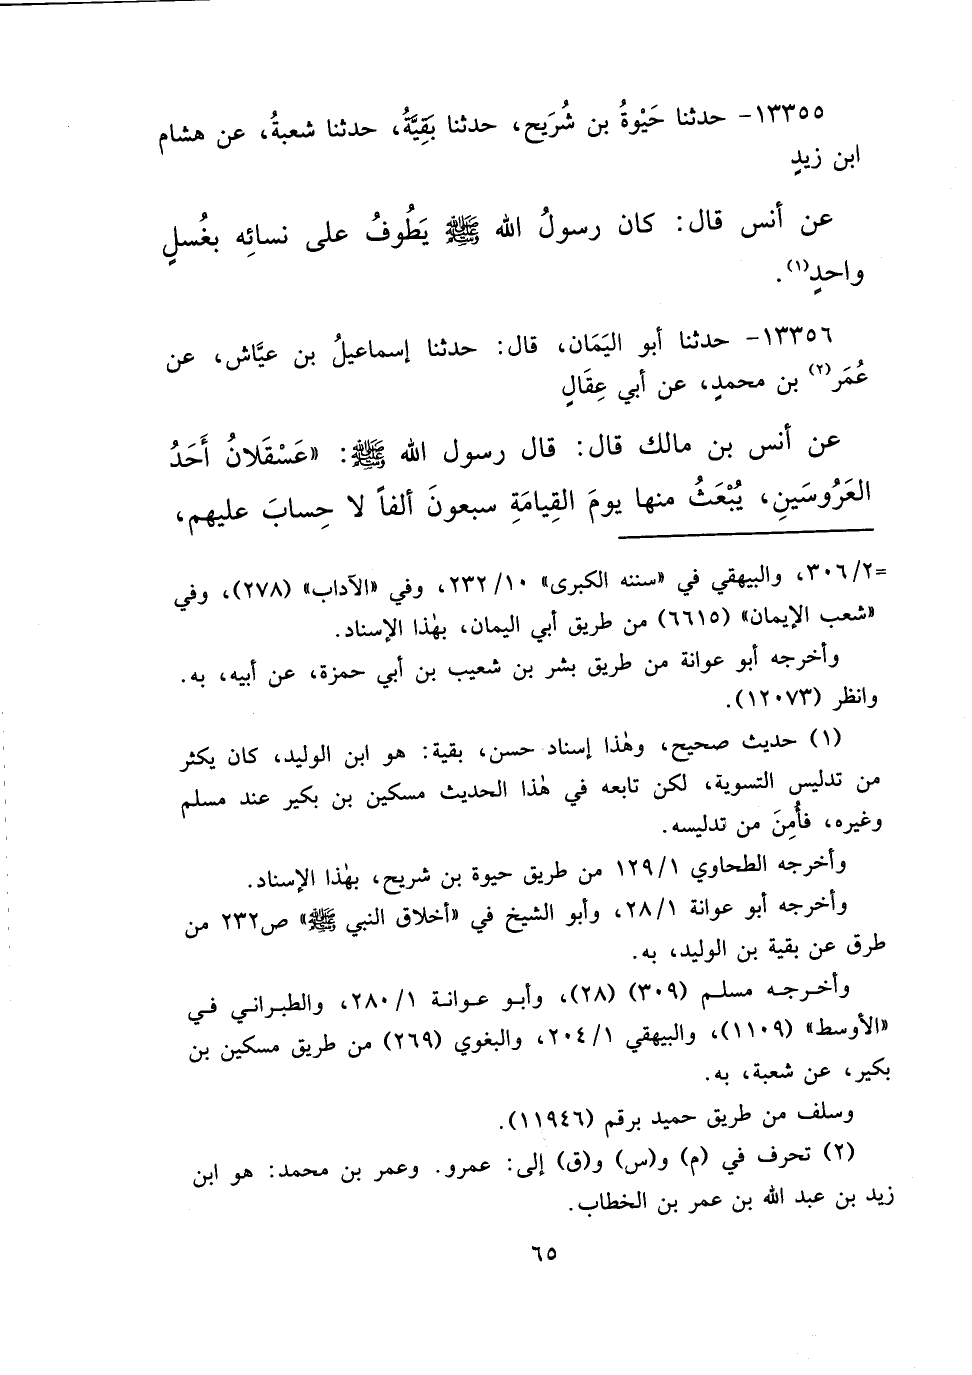 ١٣٣٥٥- حدثنا حَيْوةُ بن شُرَيح، حدثنا بَقِيَّةُ، حدثنا شعبةُ، عن هشام
ابن زيدٍ
عن أنس قال: كان رسولُ الله ﷺ يَطُوفُ على نسائِه بغُسلٍ
واحدٍ(١).
١٣٣٥٦- حدثنا أبو اليَمَان، قال: حدثنا إسماعيلُ بن عيَّاش، عن
عُمَر(٢) بن محمدٍ، عن أبي عِقَالٍ
عن أنس بن مالك قال: قال رسول الله ﷺ: «عَسْقَلانُ أَحَدُ
العَرُوسَينِ، يُبْعَثُ منها يومَ القِيامَةِ سبعونَ ألفاً لا حِسابَ عليهم،
=٣٠٦/٢، والبيهقي في «سننه الكبرى» ٢٣٢/١٠، وفي «الآداب» (٢٧٨)، وفي
«شعب الإيمان» (٦٦١٥) من طريق أبي اليمان، بهٰذا الإسناد.
وأخرجه أبو عوانة من طريق بشر بن شعيب بن أبي حمزة، عن أبيه، به.
وانظر (١٢٠٧٣).
(١) حديث صحيح، وهٰذا إسناد حسن، بقية: هو ابن الوليد، كان يكثر
من تدليس التسوية، لكن تابعه في هٰذا الحديث مسكين بن بكير عند مسلم
وغيره، فأُمِنَ من تدليسه.
وأخرجه الطحاوي ١٢٩/١ من طريق حيوة بن شريح، بهٰذا الإسناد.
وأخرجه أبو عوانة ٢٨/١، وأبو الشيخ في «أخلاق النبي ﷺ» ص٢٣٢ من
طرق عن بقية بن الوليد، به.
وأخرجه مسلم (٣٠٩) (٢٨)، وأبو عوانة ٢٨٠/١، والطبراني في
«الأوسط» (١١٠٩)، والبيهقي ٢٠٤/١، والبغوي (٢٦٩) من طريق مسكين بن
بكير، عن شعبة، به.
وسلف من طريق حميد برقم (١١٩٤٦).
(٢) تحرف في (م) و(س) و(ق) إلى: عمرو. وعمر بن محمد: هو ابن
زيد بن عبد الله بن عمر بن الخطاب.
٦٥